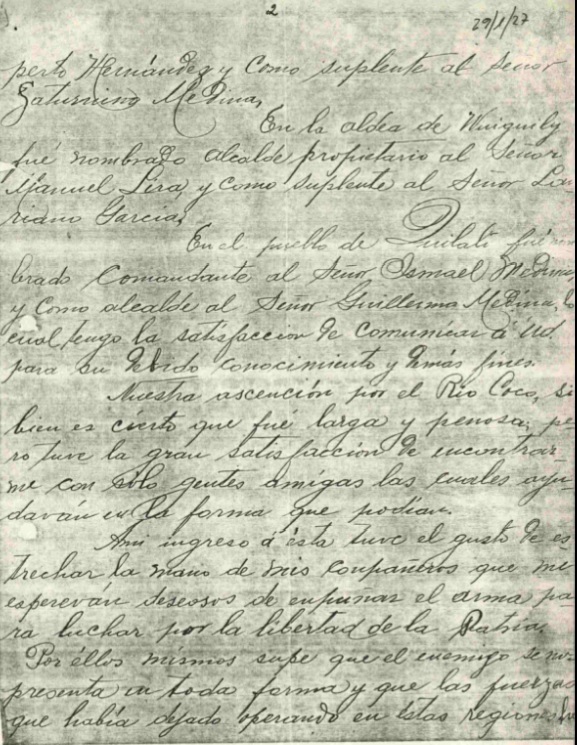 2
29/1/27
perto Hernández y como suplente al Señor
Saturnino Medina,
En la aldea de Wuiguily
fué nombrado alcalde propietario al Señor
Manuel Lira, y como suplente al Señor Lau
riano Garcia,
En el pueblo de Quilalí fué nom
brado Comandante al Señor Ismael Medina
y como alcalde al Señor Guillermo Medina, lo
cual tengo la satisfaccion de comunicar á Ud
para su debido conocimiento y demás fines.
Nuestra ascención por el Rio Coco, si
bien es cierto que fué larga y penosa; pe
ro tuve la gran satisfacción de encontrar
me con sólo gentes amigas las cuales ayu
davan en la forma que podían.
Ami ingreso á ésta tuve el gusto de es
trechar la mano de mis conpañeros que me
esperevan deseosos de enpunar el arma pa
ra luchar por la libertad de la Patria.
Por éllos mismos supe que el enemigo se nos
presenta en toda forma y que las fuerzas
que había dejado operando en éstas regiones